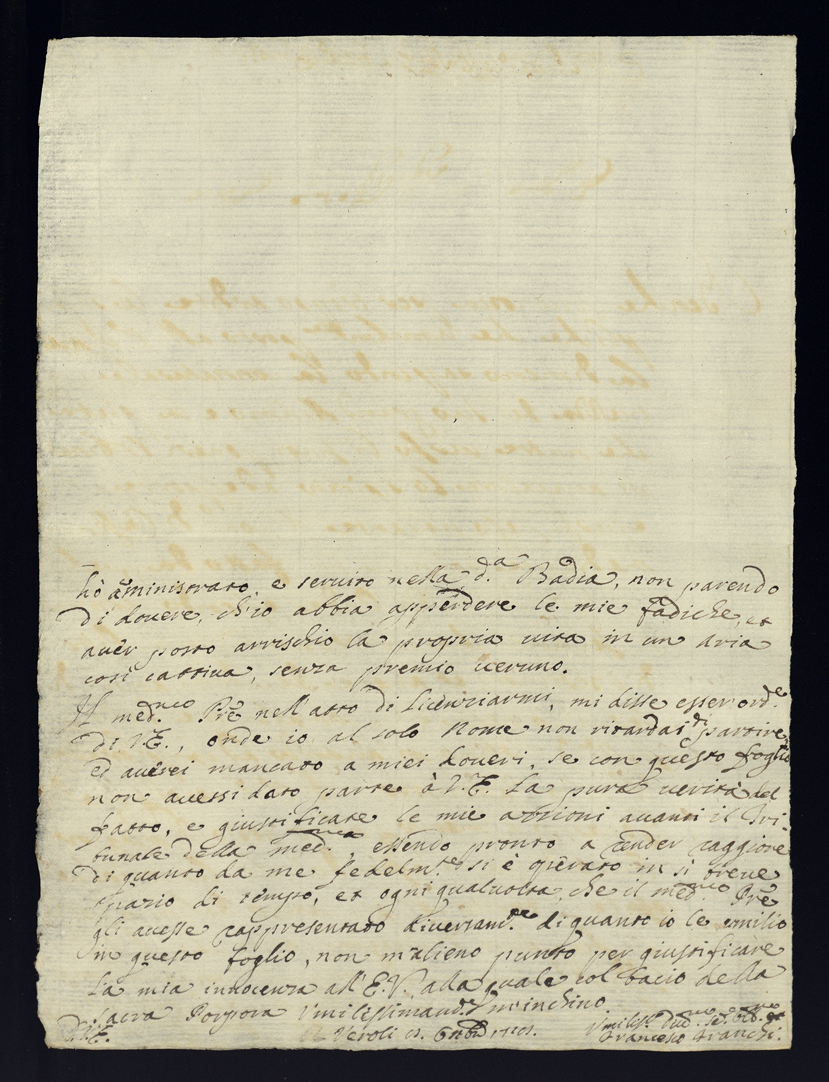 hò aministrato, e servito nella d.ª Badia, non parendo
di dovere, ch'io abbia apperdere le mie fadiche, et
aver posto arrischio la propria vita in un aria
così cattiva, senza premio veruno.
Il med.mo Prē nell'atto di Licenziarmi, mi disse esser ord.e
di V.E., onde io al solo Nome non ritardai di partire,
ed averei mancato a miei doveri, se con questo foglio
non avessi dato parte à V.E. La pura verità del
fatto, e giustificare le mie azzioni avanti il Tri-
bunale della med.ma, essendo pronto a render raggione
di quanto da me fedelm.te si è operato in sì breve
spazio di tempo, et ogni qualvolta, che il med.mo Prē
gli avesse rappresentato diversam.te di quanto io le umilio
in questo foglio, non m'alieno punto per giustificare
La mia innocenza all'E.V., alla quale col bacio della
Sacra Porpora Umilissimam.te m'inchino
D.V.E. Veroli
Francesco Franchi.